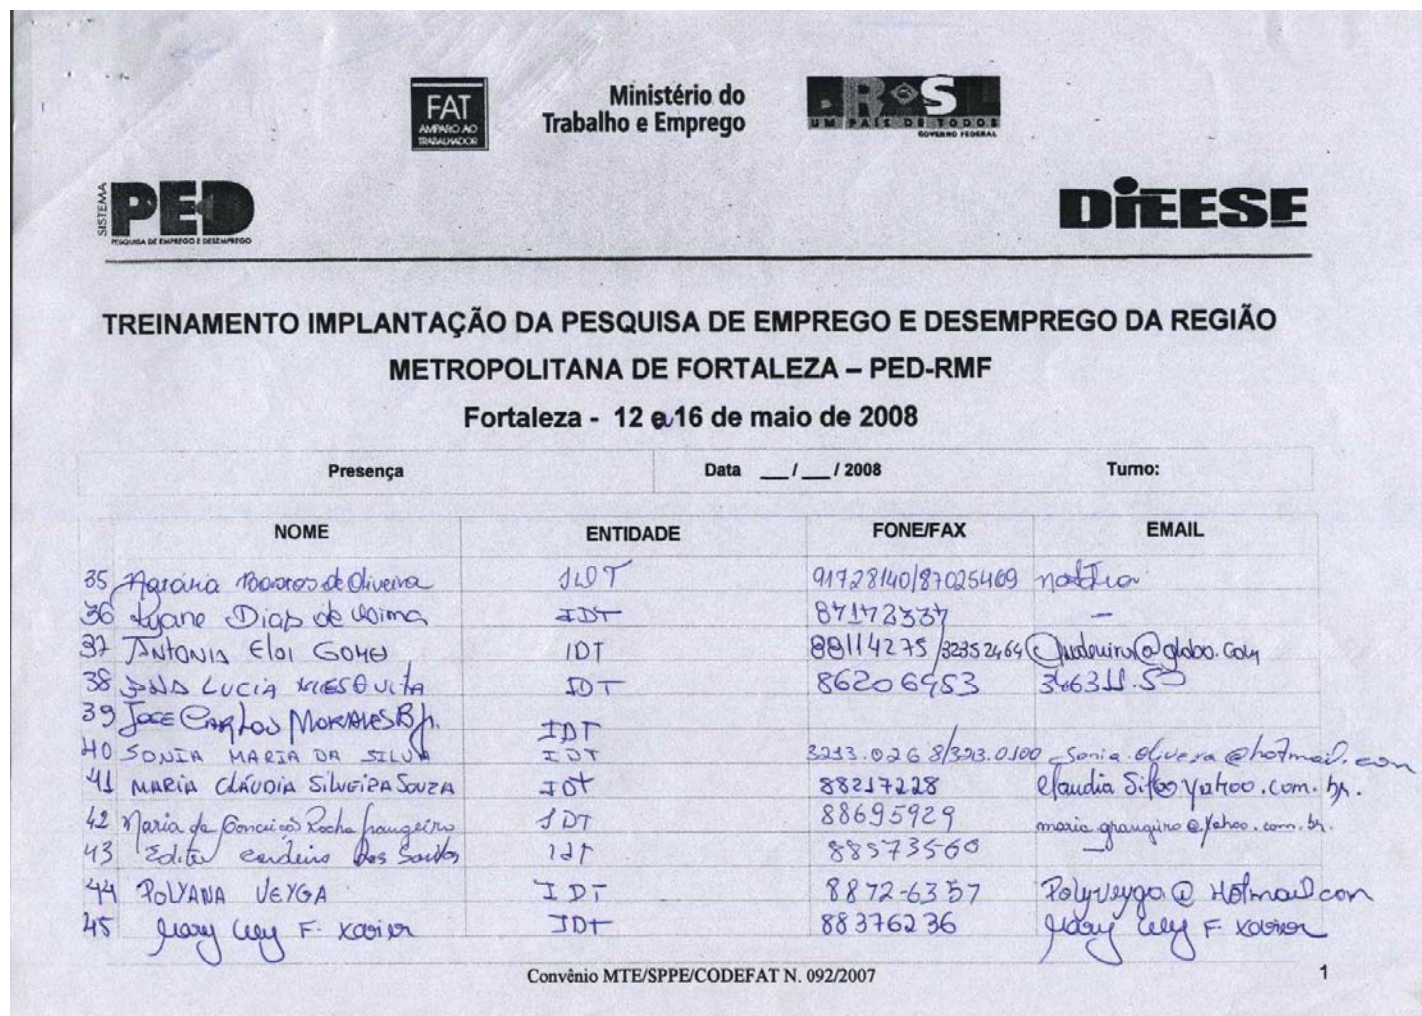 FAT
AMPARO AO
TRABALHADOR
Ministério do
Trabalho e Emprego
BRASIL
UM PAÍS DE TODOS
GOVERNO FEDERAL
SISTEMA
PED
PESQUISA DE EMPREGO E DESEMPREGO
DIEESE
TREINAMENTO IMPLANTAÇÃO DA PESQUISA DE EMPREGO E DESEMPREGO DA REGIÃO
METROPOLITANA DE FORTALEZA – PED-RMF
Fortaleza - 12 a 16 de maio de 2008
Presença Data __/__/ 2008 Turno:
NOME ENTIDADE FONE/FAX EMAIL
35 de Oliveira IDT 91728140/87025469
36 Dias de Lima IDT 87172337 —
37 ANTONIA ELOI GOMES IDT 88114275/32352464 @globo.com
38 LUCIA MESQUITA IDT 86206953
39 JOSE CARLOS MORAES B Jr. IDT
40 SONIA MARIA DA SILVA IDT 3213.0268/3213.0100 Sonia.olivera@hotmail.com
41 MARIA CLÁUDIA SILVEIRA SOUZA IDT 88217228
42 Maria da Conceição Rocha frangeiro IDT 88695929
43 Cordeiro dos Santos IDT 88573560 —
44 POLYANA VEYGA IDT 8872-6357 Polyveyga@Hotmail.com
45 Mary Lucy F. Xavier IDT 88376236 Mary Lucy F. Xavier
Convênio MTE/SPPE/CODEFAT N. 092/2007 1